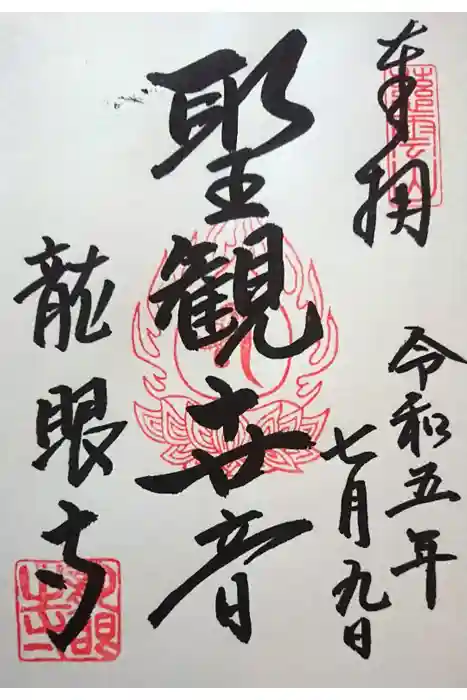 奉拝
慈雲山
令和五年
七月九日
聖観世音
龍眼寺